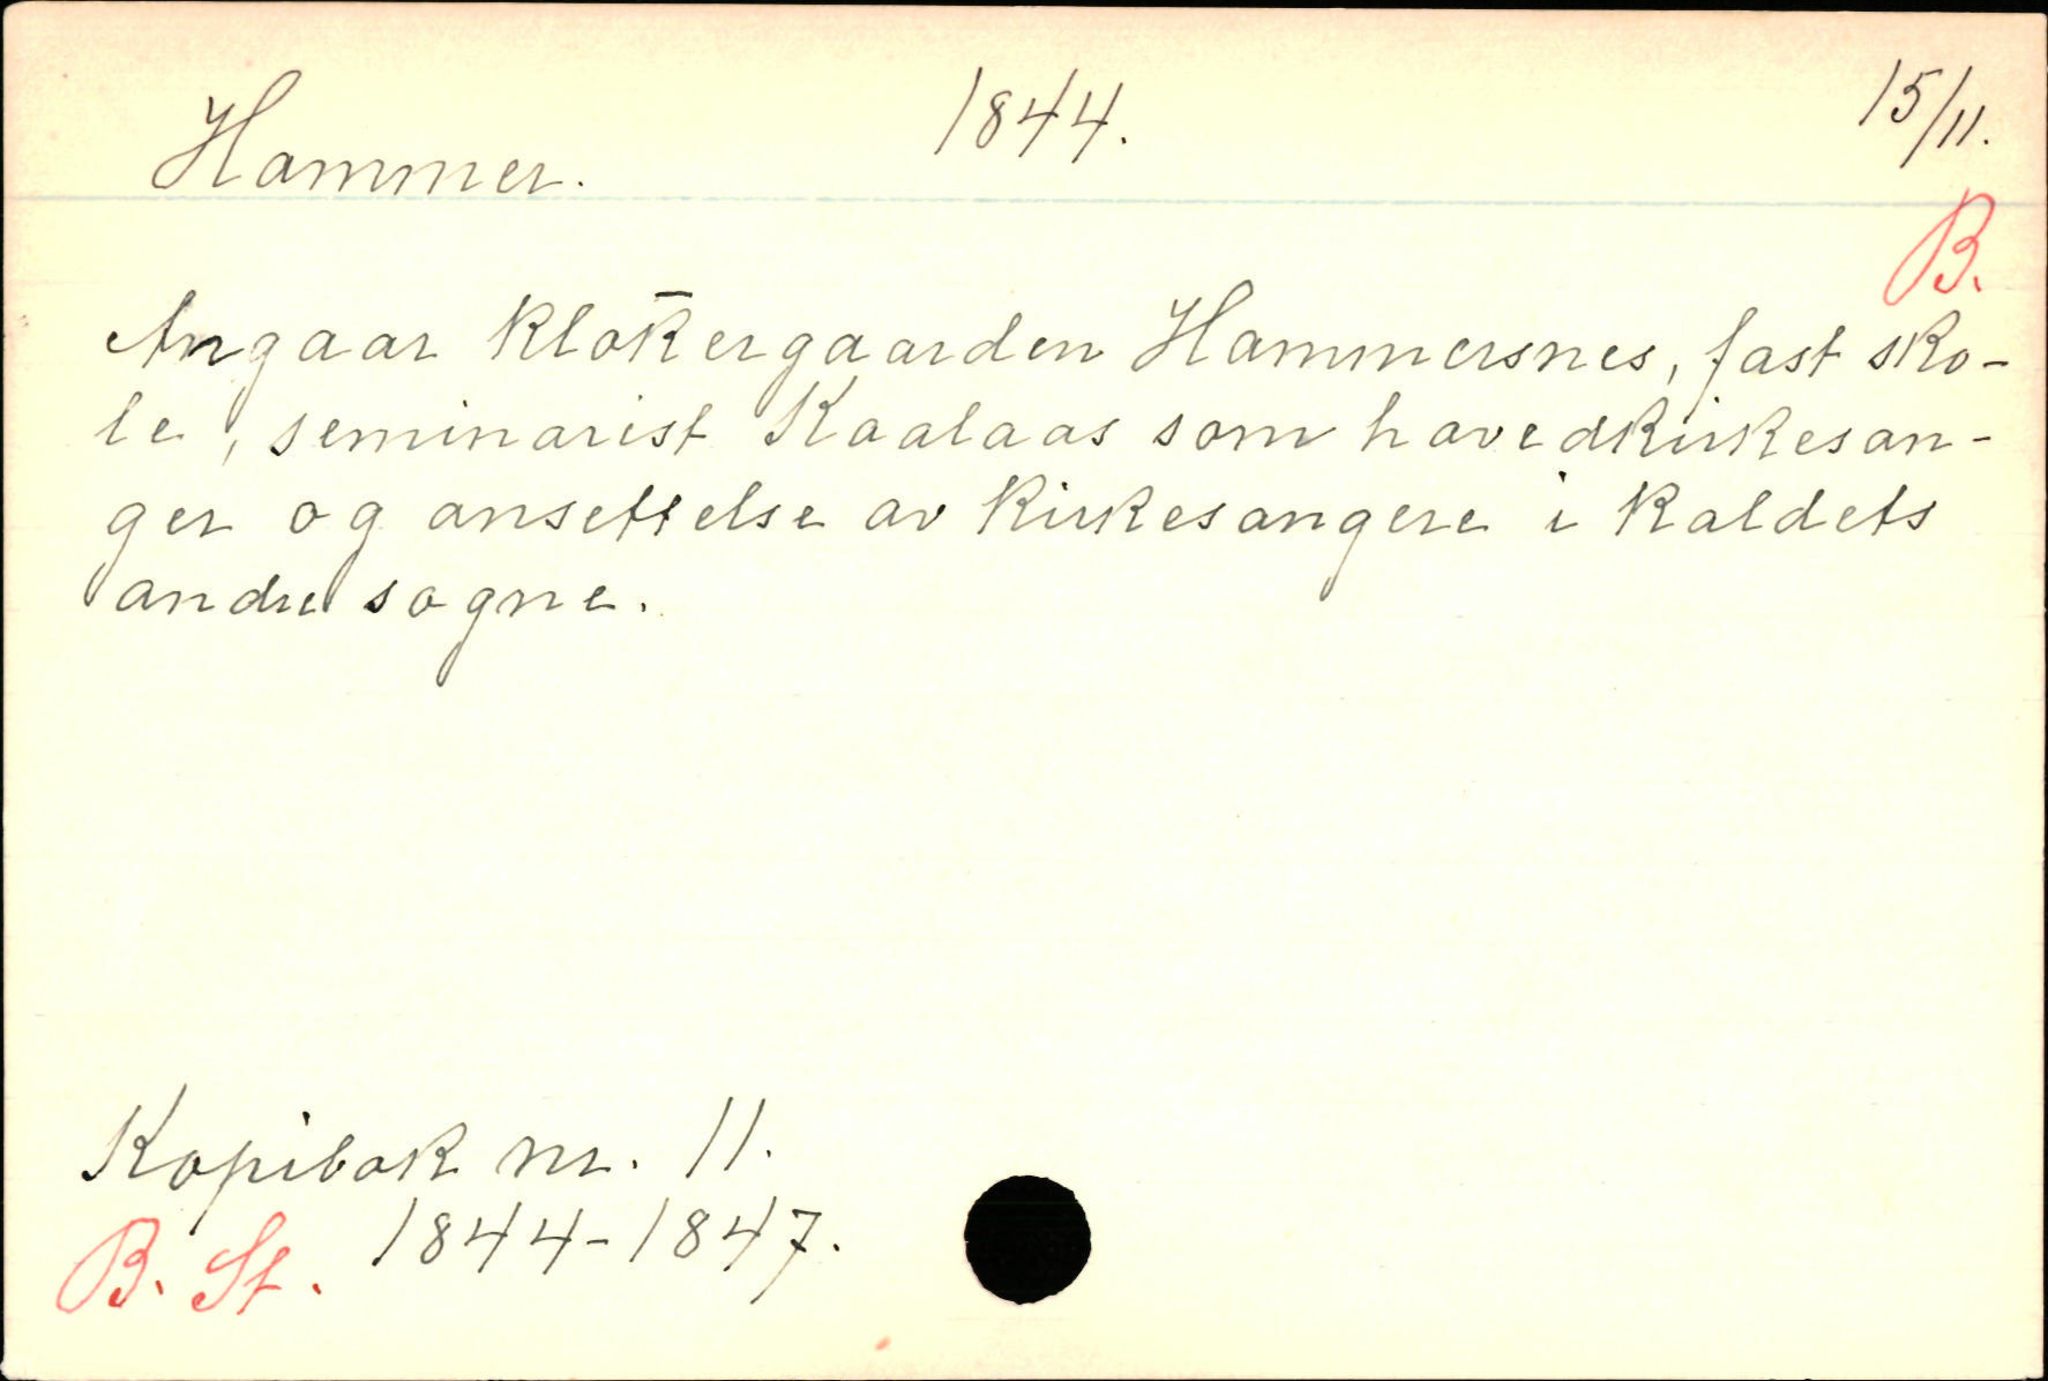 Hammer. 1844. 15/11.
B.
Angaar klok̄ergaarden Hammersnes, fast sko-
le, seminarist Kaalaas som hovedkirkesan-
ger og ansettelse av kirkesangere i kaldets
andre sogne.
Kopibok nr. 11.
B. St. 1844-1847.